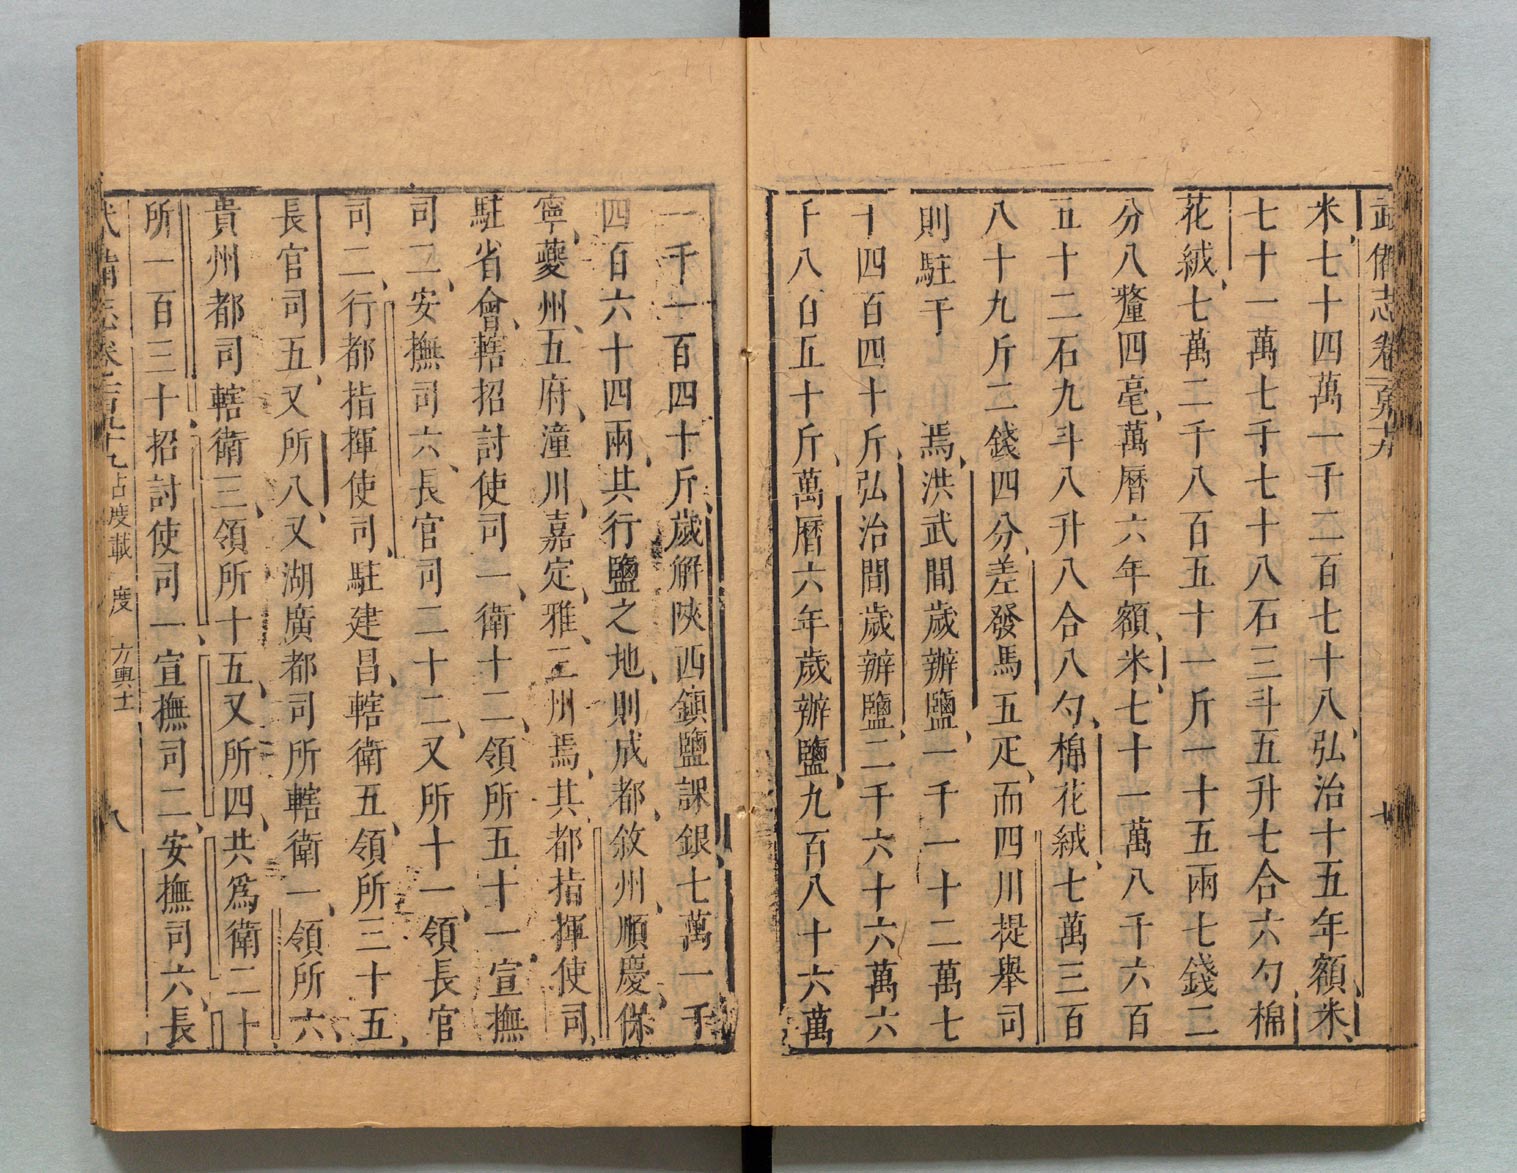 武備志卷一百九十九
七
米七十四萬一千二百七十八弘治十五年額米
七十二萬七千七十八石三斗五升七合六勺棉
花絨七萬二千八百五十一斤一十五兩七錢二
分八釐四毫萬曆六年額米七十一萬八千六百
五十二石九斗八升八合八勺棉花絨七萬三百
八十九斤二錢四分差發馬五疋而四川提舉司
則駐于 焉洪武間歲辦鹽一千一十二萬七
十四百四十斤弘治間歲辦鹽二千六十六萬六
千八百五十斤萬曆六年歲辦鹽九百八十六萬
一千一百四十斤歲解陝西鎮鹽課銀七萬一千
四百六十四兩其行鹽之地則成都敘州順慶保
寧夔州五府潼川嘉定雅三州焉其都指揮使司
駐省會轄招討使司一衛十二領所五十一宣撫
司二安撫司六長官司二十二又所十一領長官
司二行都指揮使司駐建昌轄衛五領所三十五
長官司五又所八又湖廣都司所轄衛一領所六
貴州都司轄衛三領所十五又所四共爲衛二十
所一百三十招討使司一宣撫司二安撫司六長
武備志卷一百九十九 占度載 度 方輿十一
八